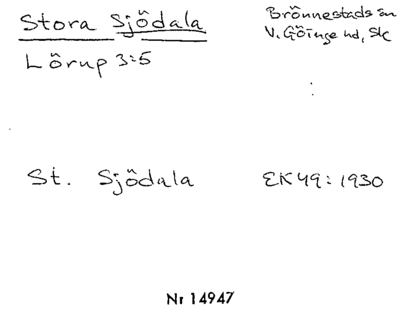 Stora Sjödala
Brönnestads sn
V. Göinge hd, Sk
Lörup 3:5
St. Sjödala
EK 49: 1930
Nr 14947